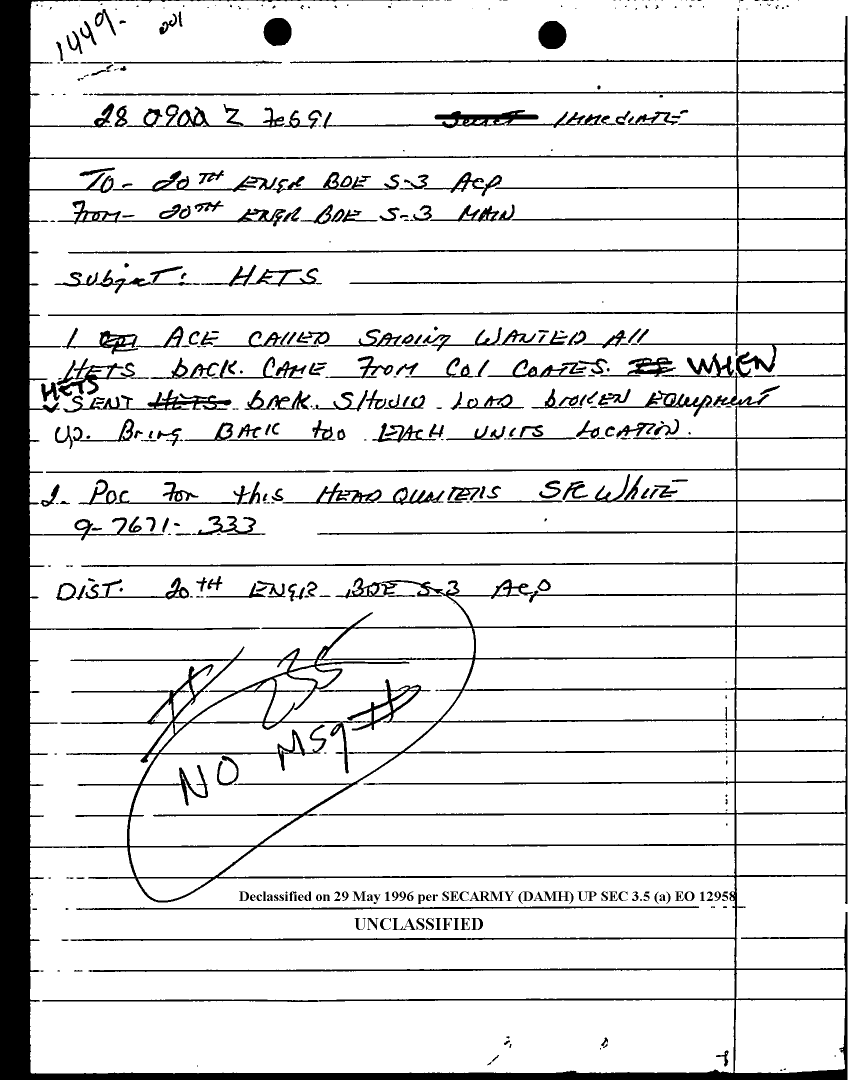 1449-
001
28 0900 Z Feb91 Secret Immediate
To - 20TH ENGR BDE S-3 Acp
From - 20TH ENGR BDE S-3 MAIN
Subject: HETS
1 ACE CALLED SAIDING WANTED All
HETS BACK. CAME From Col COATES. WHEN
HETS
SENT HETS back. SHOULD LOAD broken EQuipment
up. Bring BACK too EACH UNITS LOCATION.
2. Poc For this HEADQUATERS SFC WhITE
9-7671-333
DIST. 20TH ENGR BDE S-3 Acp
# 235
NO MSg #
Declassified on 29 May 1996 per SECARMY (DAMH) UP SEC 3.5 (a) EO 12958
UNCLASSIFIED